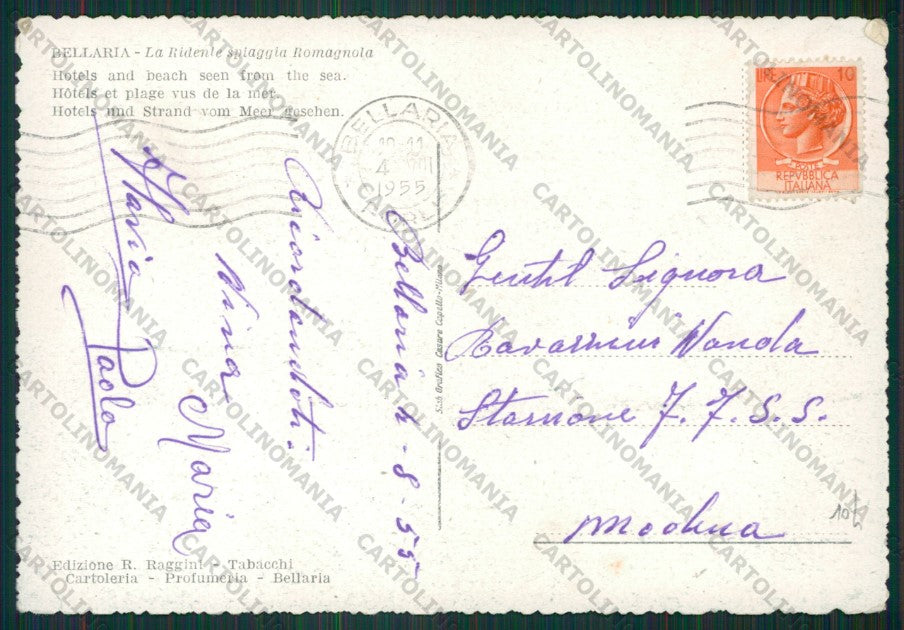 BELLARIA - La Ridente spiaggia Romagnola
Hotels and beach seen from the sea.
Hôtels et plage vus de la mer.
Hotels und Strand vom Meer gesehen.
BELLARIA
4 VIII
1955
LIRE 10
POSTE
REPVBBLICA
ITALIANA
Bellaria 4-8-55
Ricordandoti:
Nina Maria
Flavia Paola
Stab Grafico Cesare Capello-Milano
Gentil Signora
Vanda
Stazione F. F. S. S.
Modena
10
Edizione R. Raggini - Tabacchi
Cartoleria - Profumeria - Bellaria
CARTOLINOMANIA